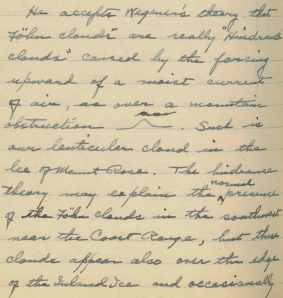 He accepts Wegener's theory that
"Föhn clouds" are really "Hindrance
clouds" caused by the forcing
upward of a moist current
of air, as over a mountain
obstruction. Such is
our lenticular cloud in the
lee of Mount Rose. The hindrance
theory may explain the normal presence
of the Föhn clouds in the southwest
near the Coast Range, but these
clouds appear also over the edge
of the Inland Ice and occasionally